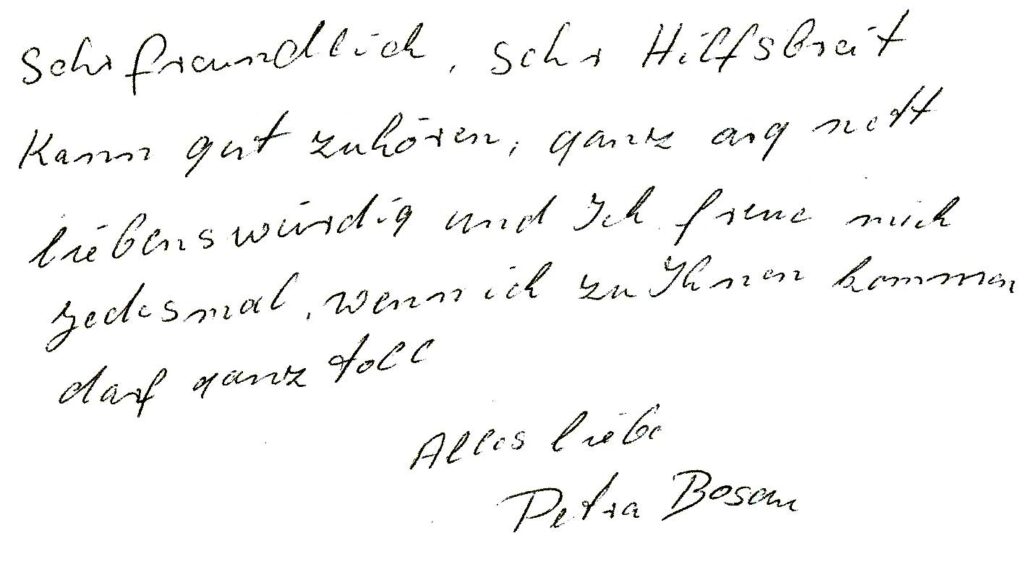 Sehr freundlich, sehr Hilfsbreit
Kann gut zuhören, ganz arg nett
liebenswürdig und Ich freue mich
jedesmal, wenn ich zu Ihnen kommen
darf ganz toll
Alles liebe
Petra